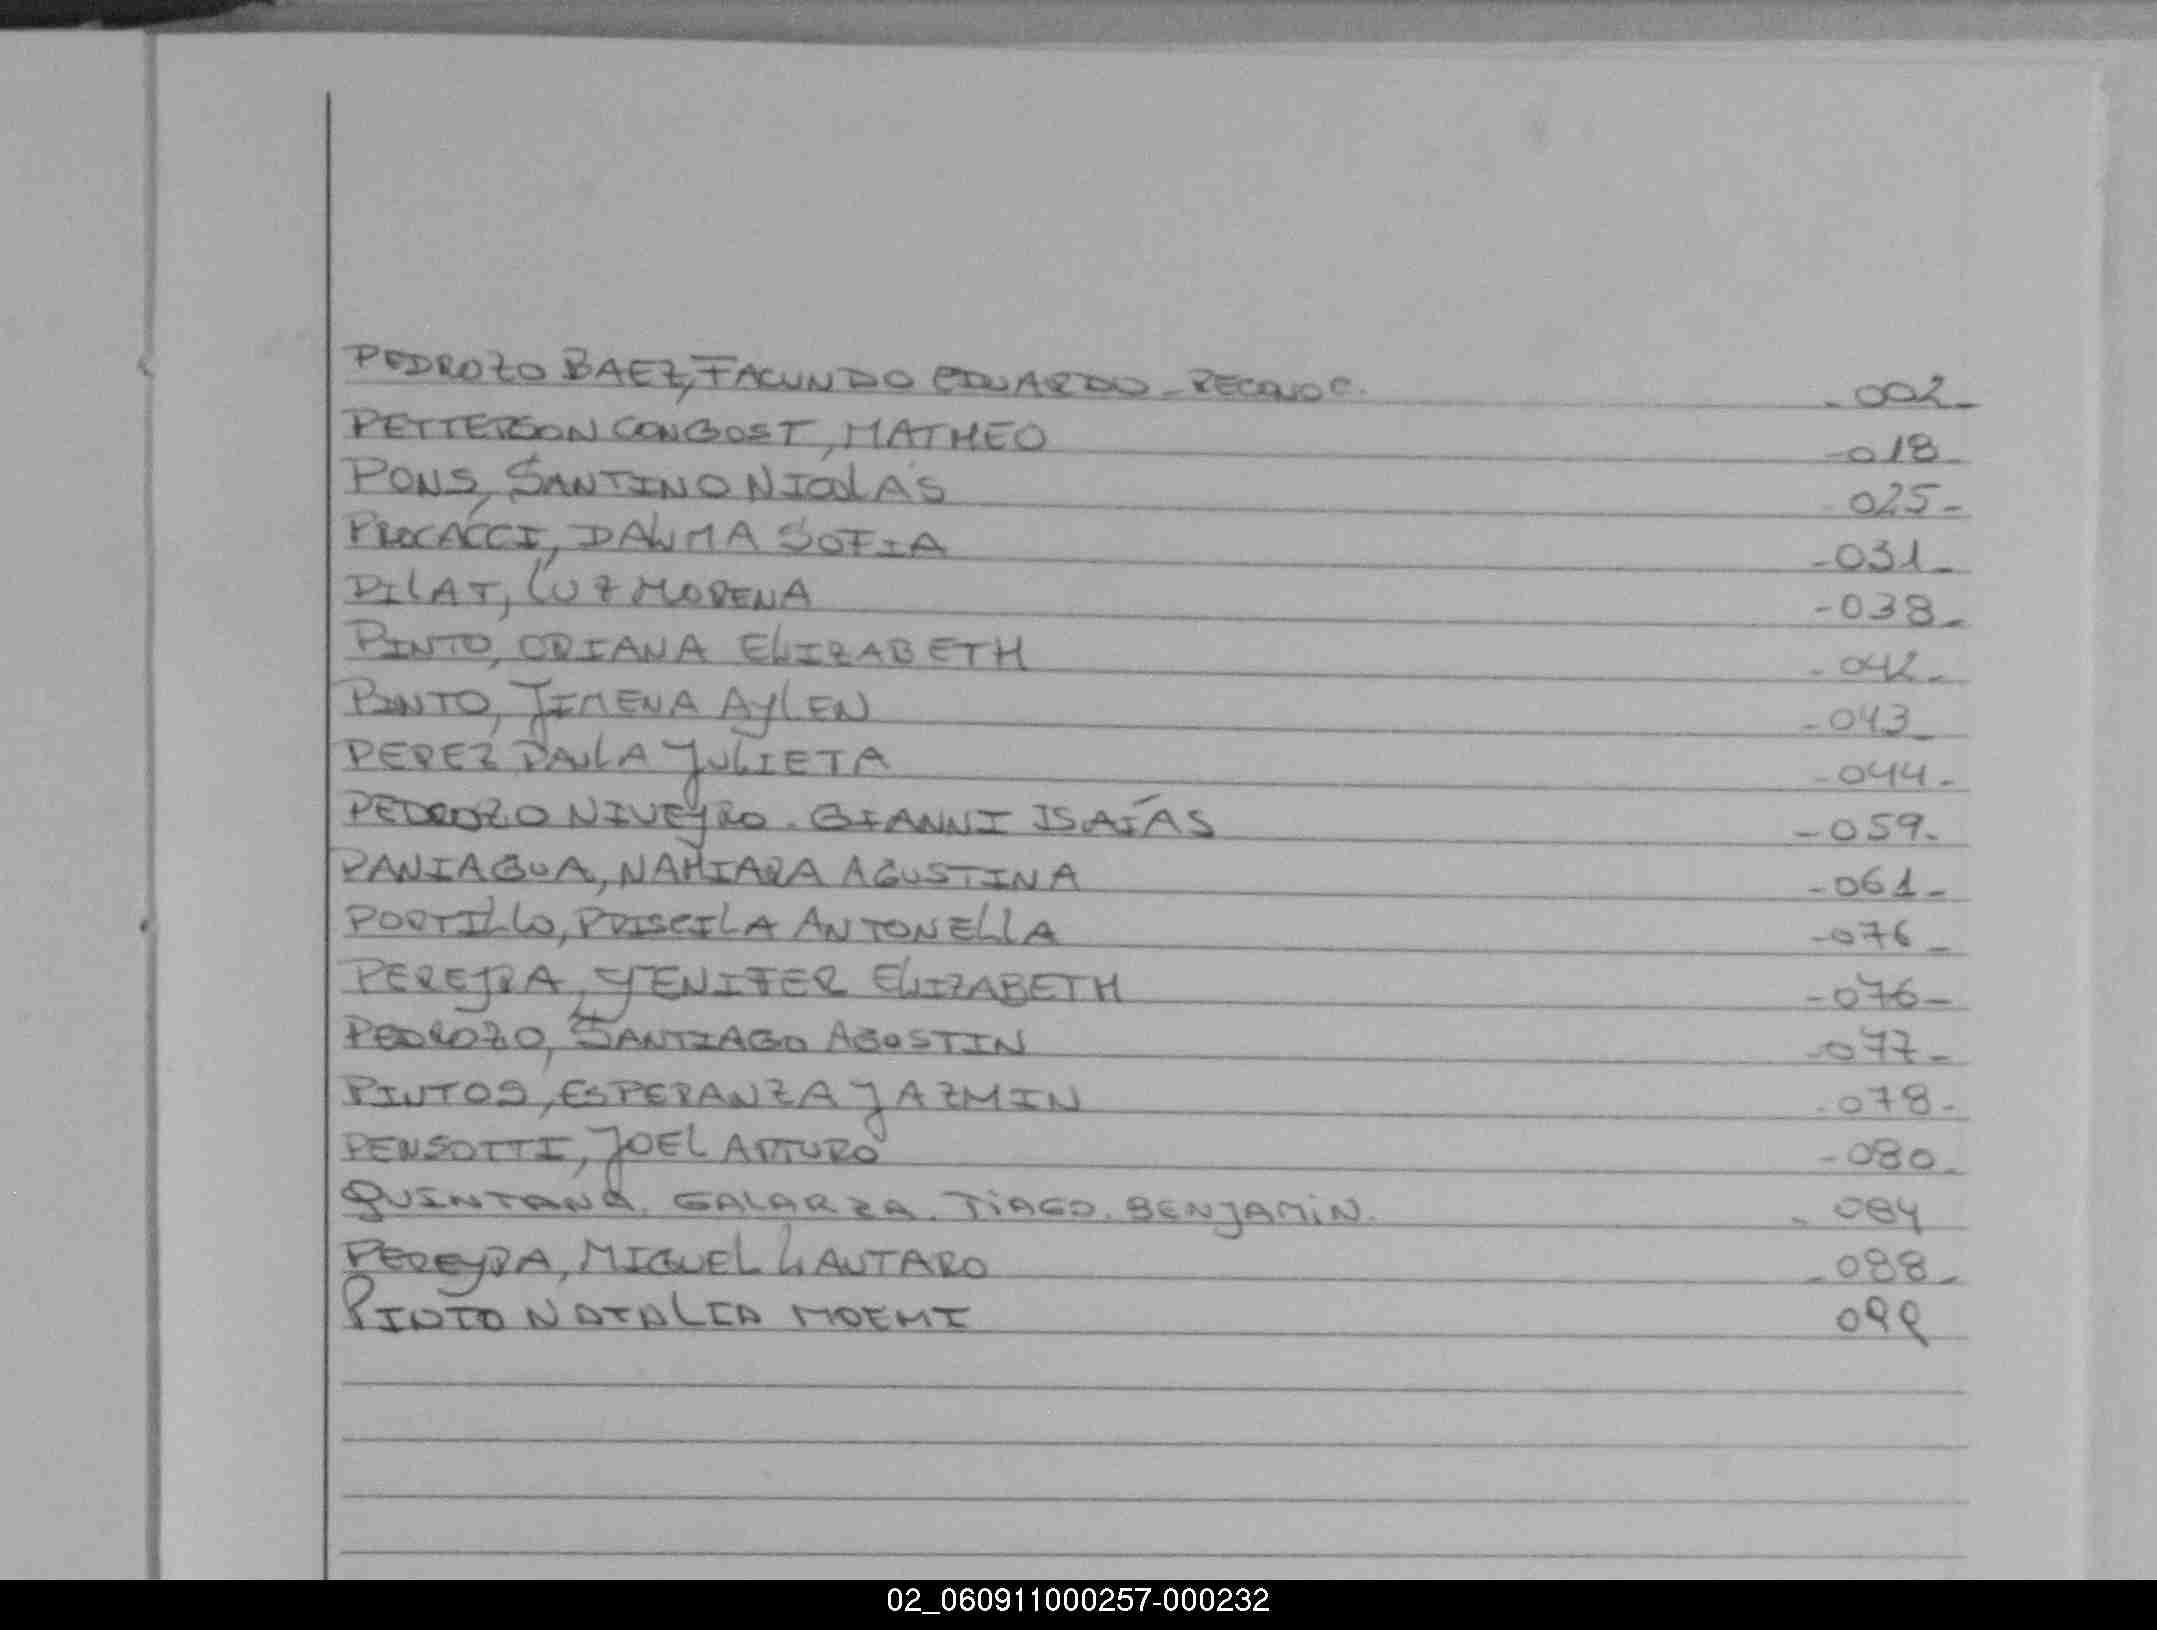 PEDROZO BAEZ, FACUNDO EDUARDO - RECONOC. - 002 -
PETTERSON CONGOST, MATHEO - 018 -
PONS, SANTINO NICOLAS - 025 -
PROCACCI, DALMA SOFIA - 031 -
PILAT, LUZ MORENA - 038 -
PINTO, ORIANA ELIZABETH - 042 -
PINTO, JIMENA AYLEN - 043 -
PEREZ PAULA JULIETA - 044 -
PEDROZO NIVEYRO. GIANNI ISAÍAS - 059 -
PANIAGUA, NAHIARA AGUSTINA - 061 -
PORTILLO, PRISCILA ANTONELLA - 076 -
PEREYRA, YENIFER ELIZABETH - 076 -
PEDROZO, SANTIAGO AGOSTIN - 077 -
PINTOS, ESPERANZA JAZMIN - 078 -
PENSOTTI, JOEL ARTURO - 080 -
QUINTANA. GALARZA. TIAGO. BENJAMIN. - 084
PEREYRA, MIGUEL LAUTARO - 088 -
PINTO NATALIA NOEMI 099
02_060911000257-000232